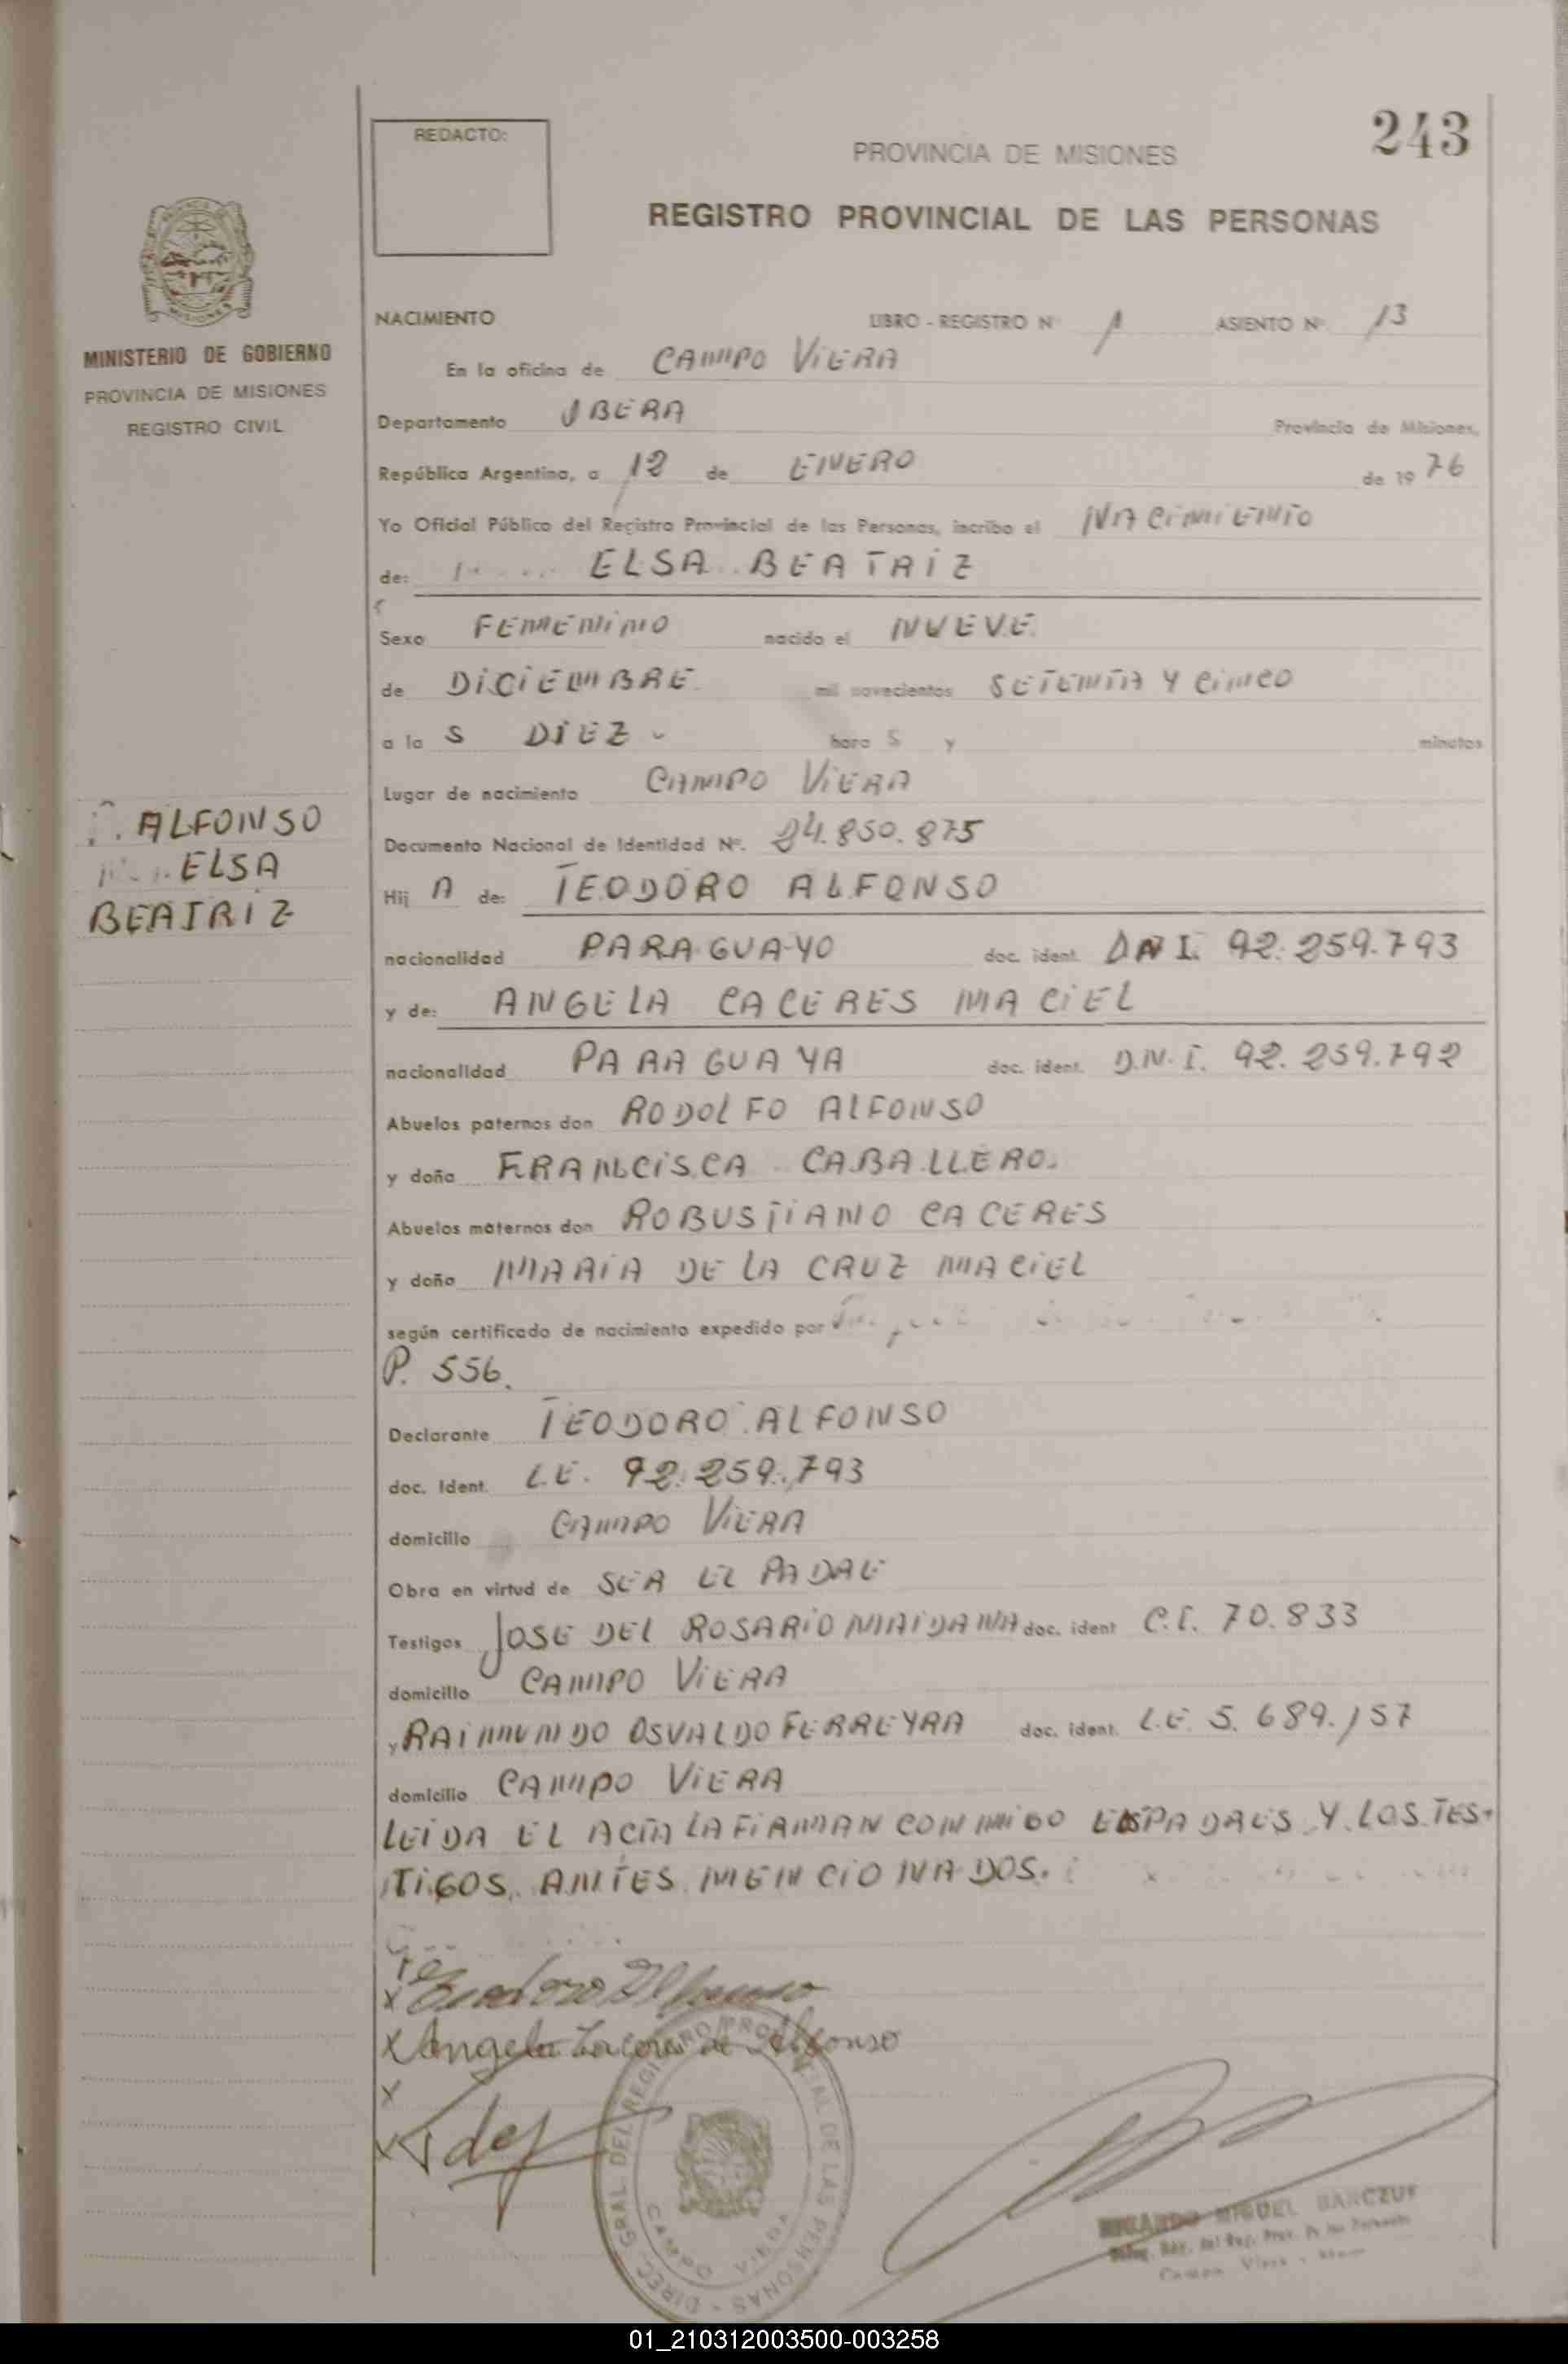 243
REDACTO:
PROVINCIA DE MISIONES
REGISTRO PROVINCIAL DE LAS PERSONAS
MINISTERIO DE GOBIERNO
PROVINCIA DE MISIONES
REGISTRO CIVIL
NACIMIENTO LIBRO - REGISTRO Nº 1 ASIENTO Nº 13
En la oficina de CAMPO VIERA
Departamento OBERA Provincia de Misiones,
República Argentina, a 12 de ENERO de 1976
Yo Oficial Público del Registro Provincial de las Personas, incribo el NACIMIENTO
de: ELSA BEATRIZ
Sexo FEMENINO nacido el NUEVE
de DICIEMBRE mil novecientos SETENTA Y CINCO
a la S DIEZ hora S y minutos
Lugar de nacimiento CAMPO VIERA
ALFONSO
ELSA
BEATRIZ
Documento Nacional de Identidad Nº. 24.850.875
Hij A de: TEODORO ALFONSO
nacionalidad PARAGUAYO doc. ident. DNI. 92.259.793
y de: ANGELA CACERES MACIEL
nacionalidad PARAGUAYA doc. ident. D.N.I. 92.259.792
Abuelos paternos don RODOLFO ALFONSO
y doña FRANCISCA CABALLERO.
Abuelos maternos don ROBUSTIANO CACERES
y doña MARIA DE LA CRUZ MACIEL
según certificado de nacimiento expedido por
P. 556.
Declarante TEODORO ALFONSO
doc. Ident. L.E. 92.259.793
domicilio CAMPO VIERA
Obra en virtud de SER EL PADRE
Testigos JOSE DEL ROSARIO MAIDANA doc. ident C.I. 70.833
domicilio CAMPO VIERA
y RAIMUNDO OSVALDO FERREYRA doc. ident. L.E. 5.689.157
domicilio CAMPO VIERA
LEIDA EL ACTA LA FIRMAN CONMIGO PADRES Y LOS TES-
TIGOS ANTES MENCIONADOS.
x Teodoro Alfonso
x Angela Caceres de Alfonso
x
x
DIREC. GRAL DEL REGISTRO PROVINCIAL DE LAS PERSONAS
CAMPO VIERA
RICARDO MIGUEL BARCZUK
Campo Viera
01_210312003500-003258